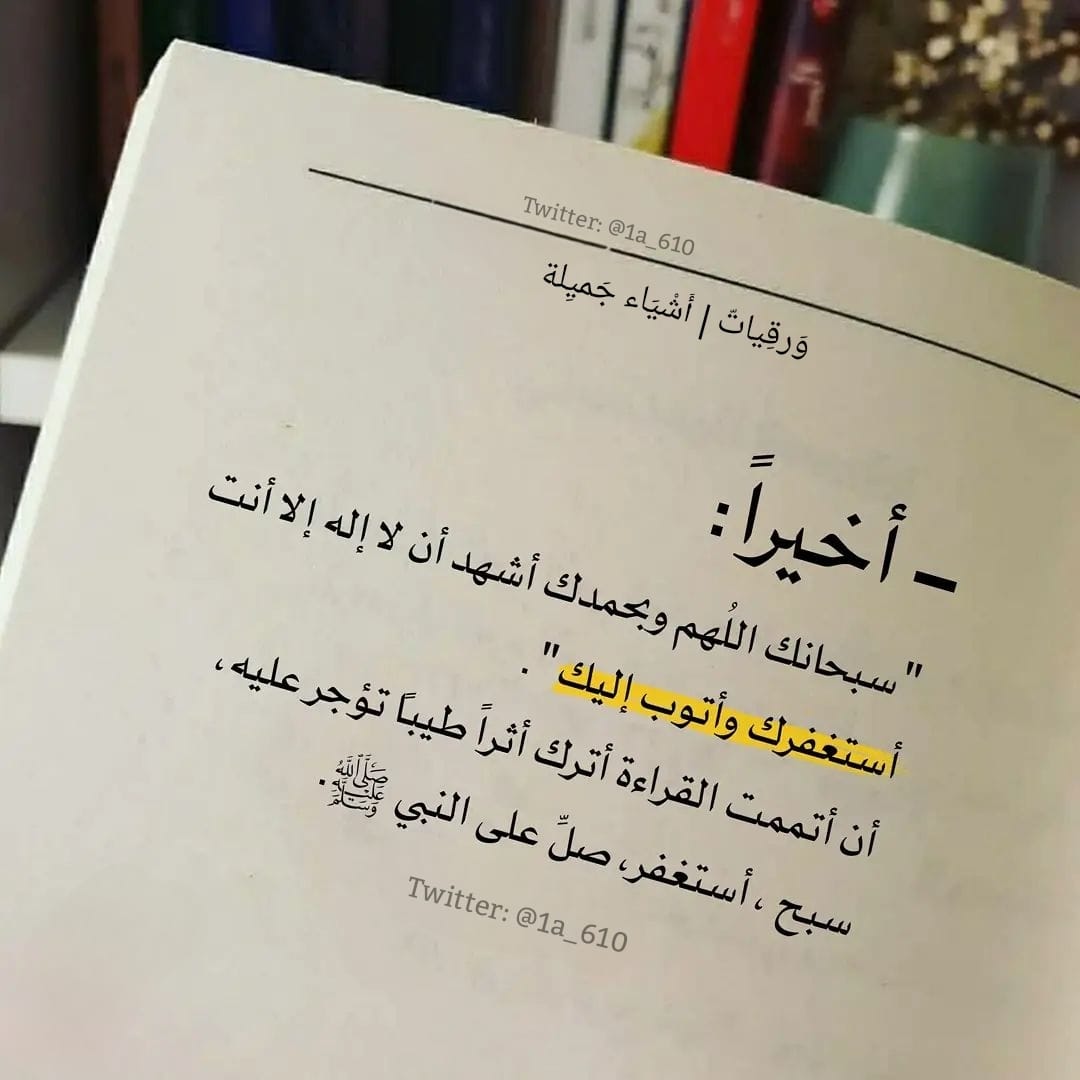 Twitter: @1a_610
وَرقِياتّ | أَشْيَاء جَميِلة
ـ أخيراً :
" سبحانك اللُهم وبحمدك أشهد أن لا إله إلا أنت
أستغفرك وأتوب إليك " .
أن أتممت القراءة أترك أثراً طيباً تؤجر عليه ،
سبح ، أستغفر، صلِّ على النبي ﷺ .
Twitter: @1a_610